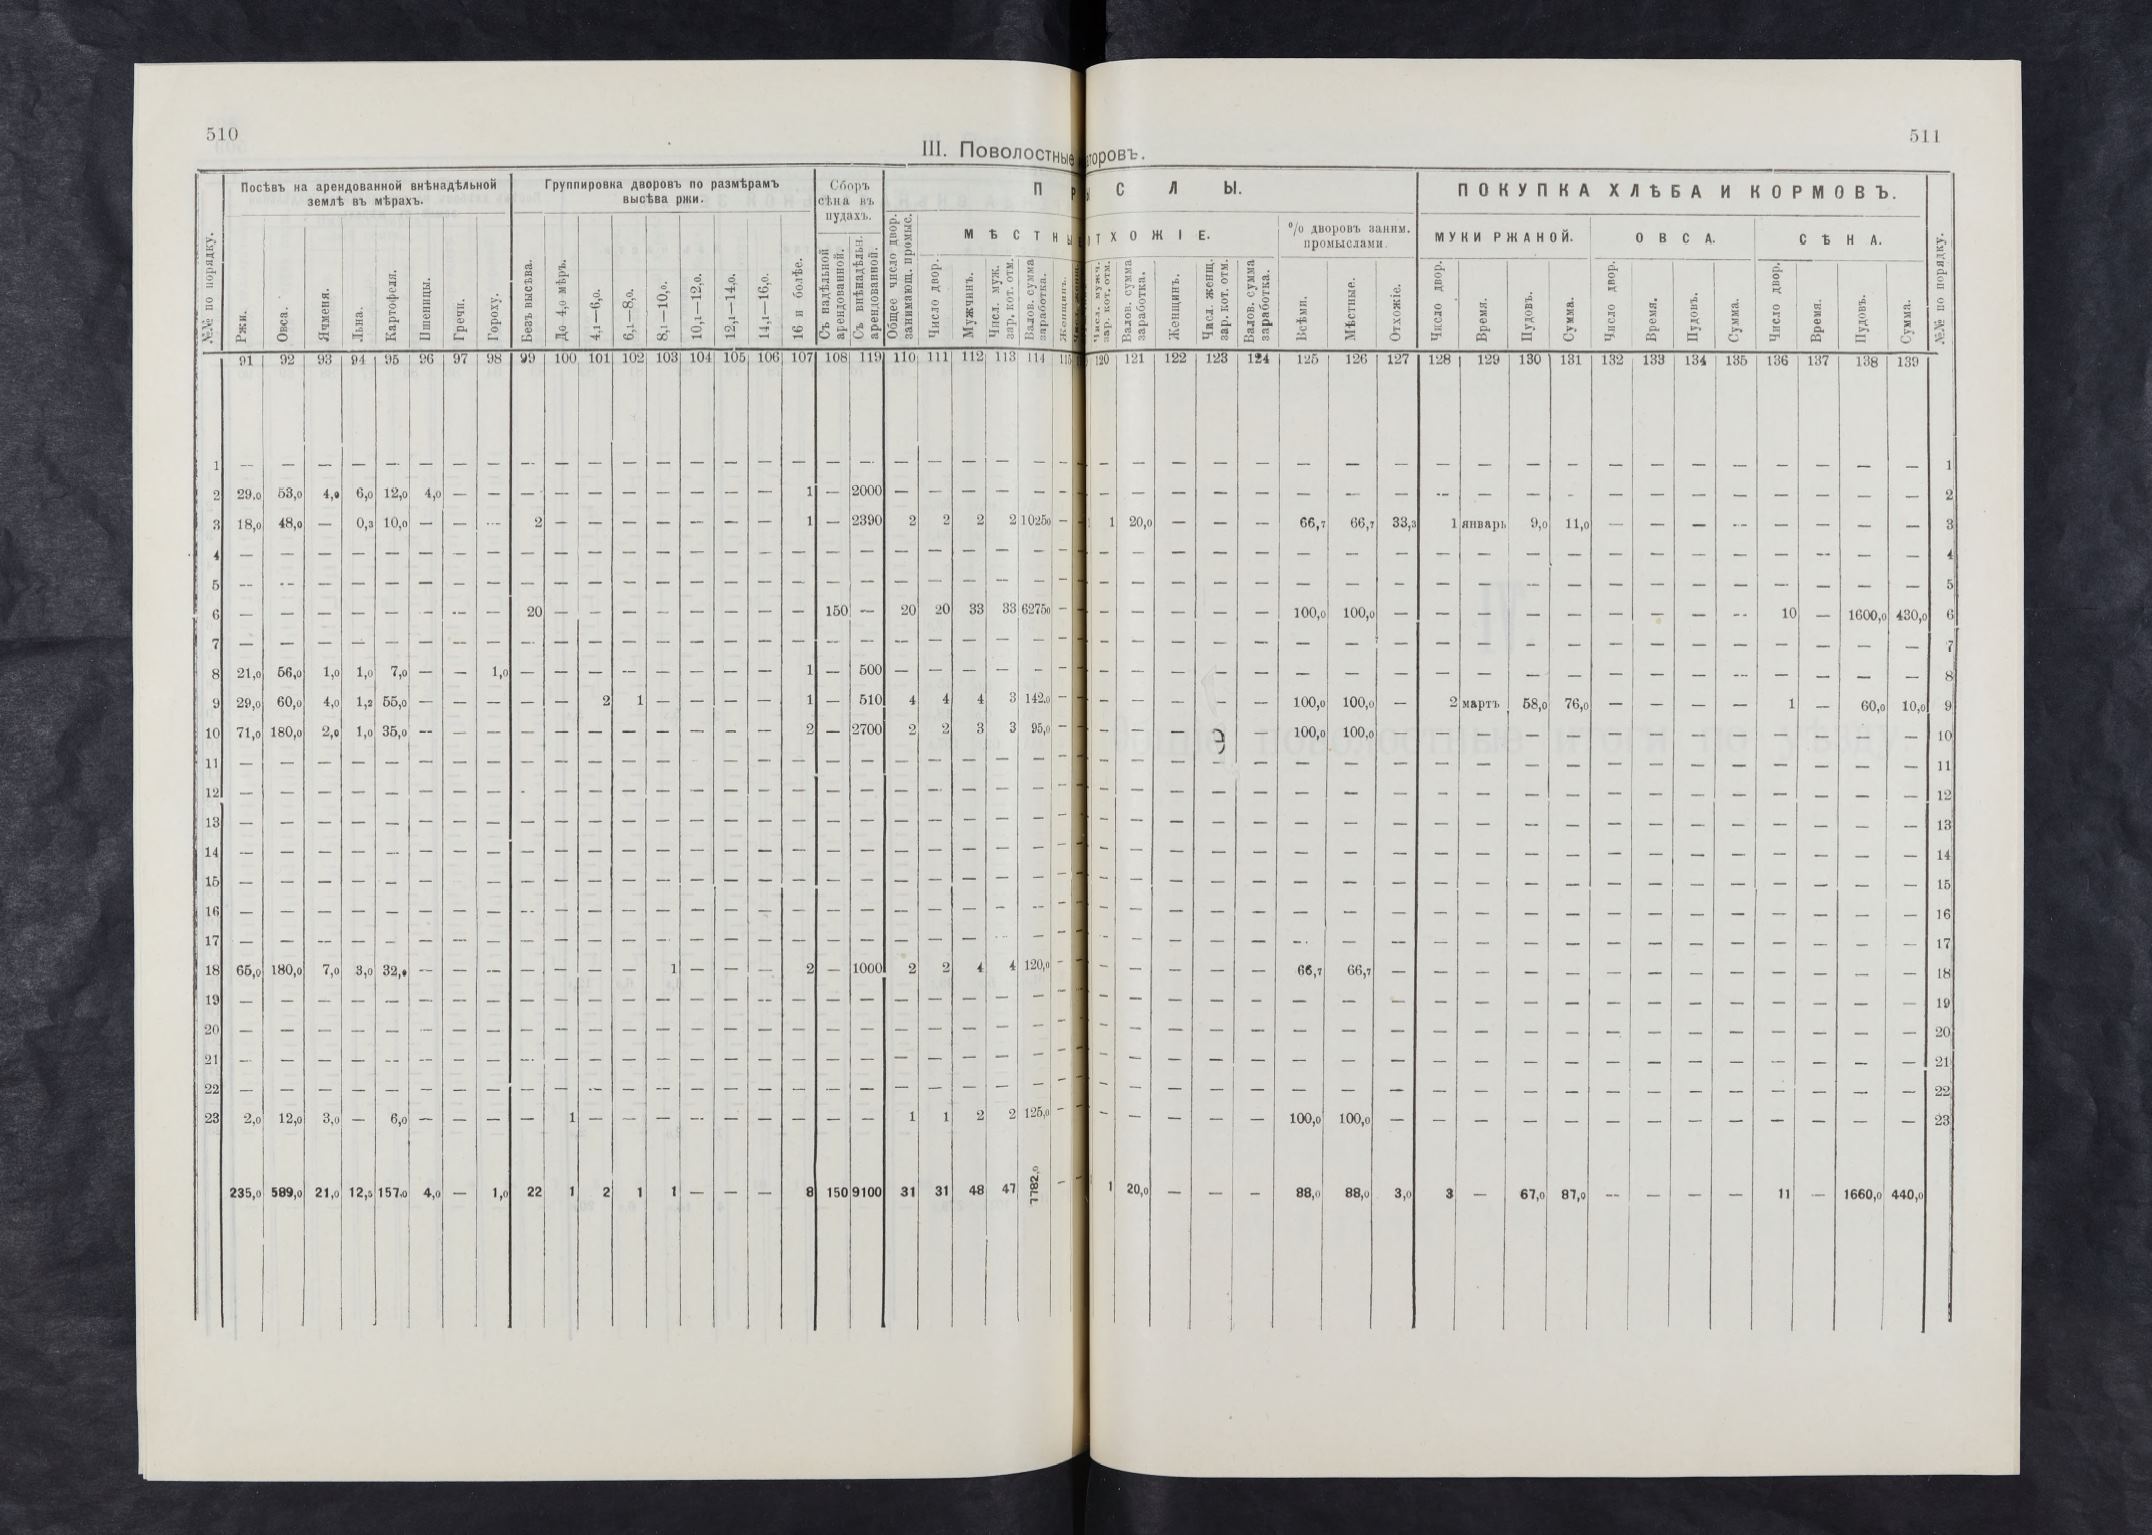 510
511
III. Поволостные
торовъ.
№№ по порядку.
Посѣвъ на арендованной внѣнадѣльной землѣ въ мѣрахъ.
Группировка дворовъ по размѣрамъ высѣва ржи.
Сборъ сѣна въ пудахъ.
П Р
С Л Ы.
ПОКУПКА ХЛѢБА И КОРМОВЪ.
№№ по порядку.
Общее число двор. занимающ. промыс.
МѢСТНЫ
ОТХОЖІЕ.
% дворовъ заним. промыслами.
МУКИ РЖАНОЙ.
ОВСА.
СѢНА.
Ржи. Овса. Ячменя. Льна. Картофеля. Пшеницы. Гречи. Гороху.
Безъ высѣва. До 4,0 мѣръ. 4,1—6,0. 6,1—8,0. 8,1—10,0. 10,1—12,0. 12,1—14,0. 14,1—16,0. 16 и болѣе.
Съ надѣльной арендованной. Съ внѣнадѣльн. арендованной.
Число двор. Мужчинъ. Числ. муж. зар. кот. отм. Валов. сумма заработка. Женщинъ.
Числ. мужч. зар. кот. отм. Валов. сумма заработка. Женщинъ. Числ. женщ. зар. кот. отм. Валов. сумма заработка.
Всѣми. Мѣстные. Отхожіе.
Число двор. Время. Пудовъ. Сумма. Число двор. Время. Пудовъ. Сумма. Число двор. Время. Пудовъ. Сумма.
91 92 93 94 95 96 97 98 99 100 101 102 103 104 105 106 107 108 119 110 111 112 113 114 115 120 121 122 123 124 125 126 127 128 129 130 131 132 133 134 135 136 137 138 139
1 — — — — — — — — — — — — — — — — — — — — — — — — — — — — — — — — — — — — — — — — — — — — — 1
2 29,0 53,0 4,0 6,0 12,0 4,0 — — — — — — — — — — 1 — 2000 — — — — — — — — — — — — — — — — — — — — — — — — — — 2
3 18,0 48,0 — 0,3 10,0 — — — 2 — — — — — — — 1 — 2390 2 2 2 2 1025,0 — 1 20,0 — — — 66,7 66,7 33,3 1 январь 9,0 11,0 — — — — — — — — 3
4 — — — — — — — — — — — — — — — — — — — — — — — — — — — — — — — — — — — — — — — — — — — — — 4
5 — — — — — — — — — — — — — — — — — — — — — — — — — — — — — — — — — — — — — — — — — — — — — 5
6 — — — — — — — — 20 — — — — — — — — 150 — 20 20 33 33 6275,0 — — — — — — 100,0 100,0 — — — — — — — — — 10 — 1600,0 430,0 6
7 — — — — — — — — — — — — — — — — — — — — — — — — — — — — — — — — — — — — — — — — — — — — — 7
8 21,0 56,0 1,0 1,0 7,0 — — 1,0 — — — — — — — — 1 — 500 — — — — — — — — — — — — — — — — — — — — — — — — — — 8
9 29,0 60,0 4,0 1,2 55,0 — — — — — 2 1 — — — — 1 — 510 4 4 4 3 142,0 — — — — — — 100,0 100,0 — 2 мартъ 58,0 76,0 — — — — 1 — 60,0 10,0 9
10 71,0 180,0 2,0 1,0 35,0 — — — — — — — — — — — 2 — 2700 2 2 3 3 95,0 — — — — — — 100,0 100,0 — — — — — — — — — — — — — 10
11 — — — — — — — — — — — — — — — — — — — — — — — — — — — — — — — — — — — — — — — — — — — — — 11
12 — — — — — — — — — — — — — — — — — — — — — — — — — — — — — — — — — — — — — — — — — — — — — 12
13 — — — — — — — — — — — — — — — — — — — — — — — — — — — — — — — — — — — — — — — — — — — — — 13
14 — — — — — — — — — — — — — — — — — — — — — — — — — — — — — — — — — — — — — — — — — — — — — 14
15 — — — — — — — — — — — — — — — — — — — — — — — — — — — — — — — — — — — — — — — — — — — — — 15
16 — — — — — — — — — — — — — — — — — — — — — — — — — — — — — — — — — — — — — — — — — — — — — 16
17 — — — — — — — — — — — — — — — — — — — — — — — — — — — — — — — — — — — — — — — — — — — — — 17
18 65,0 180,0 7,0 3,0 32,0 — — — — — — — 1 — — — 2 — 1000 2 2 4 4 120,0 — — — — — — 66,7 66,7 — — — — — — — — — — — — — 18
19 — — — — — — — — — — — — — — — — — — — — — — — — — — — — — — — — — — — — — — — — — — — — — 19
20 — — — — — — — — — — — — — — — — — — — — — — — — — — — — — — — — — — — — — — — — — — — — — 20
21 — — — — — — — — — — — — — — — — — — — — — — — — — — — — — — — — — — — — — — — — — — — — — 21
22 — — — — — — — — — — — — — — — — — — — — — — — — — — — — — — — — — — — — — — — — — — — — — 22
23 2,0 12,0 3,0 — 6,0 — — — — 1 — — — — — — — — — 1 1 2 2 125,0 — — — — — — 100,0 100,0 — — — — — — — — — — — — — 23
235,0 589,0 21,0 12,5 157,0 4,0 — 1,0 22 1 2 1 1 — — — 8 150 9100 31 31 48 47 7782,0 — 1 20,0 — — — 88,0 88,0 3,0 3 — 67,0 87,0 — — — — 11 — 1660,0 440,0